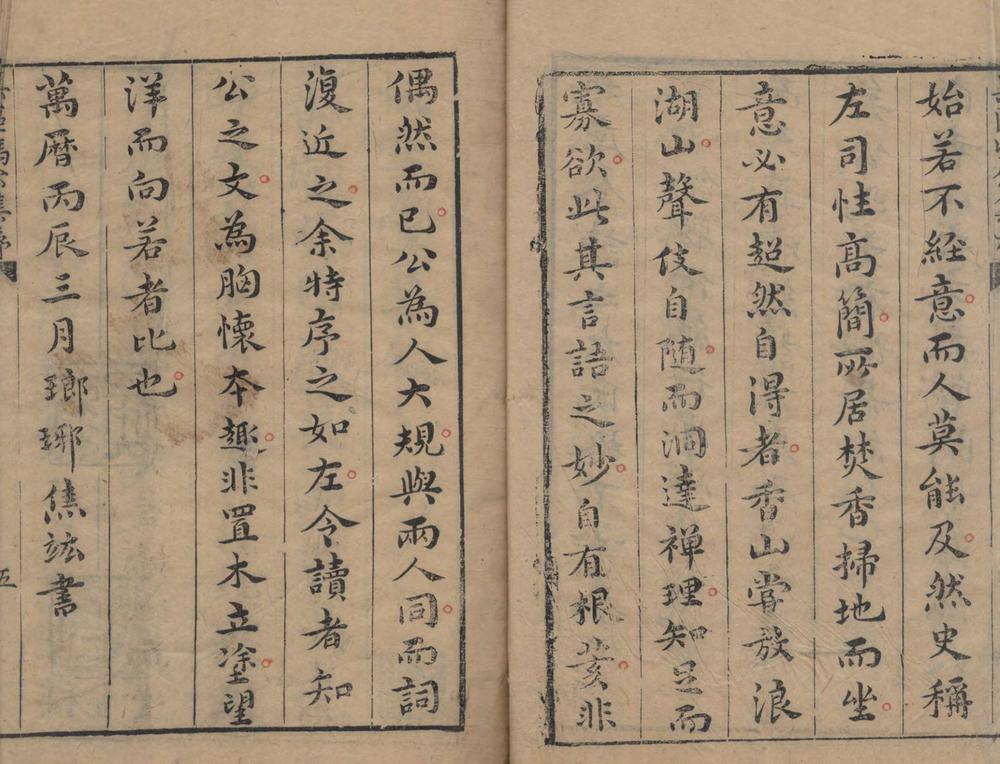 始若不經意而人莫能及然史稱
左司性高簡所居焚香掃地而坐
意必有超然自得者香山嘗放浪
湖山聲伎自随而洞達禪理知足而
寡欲此其言語之妙自有根荄非
偶然而已公為人大規與兩人同而詞
復近之余特序之如左令讀者知
公之文為胸懷本趣非置木立塗望
洋而向若者比也
萬曆丙辰三月瑯琊焦竑書
五